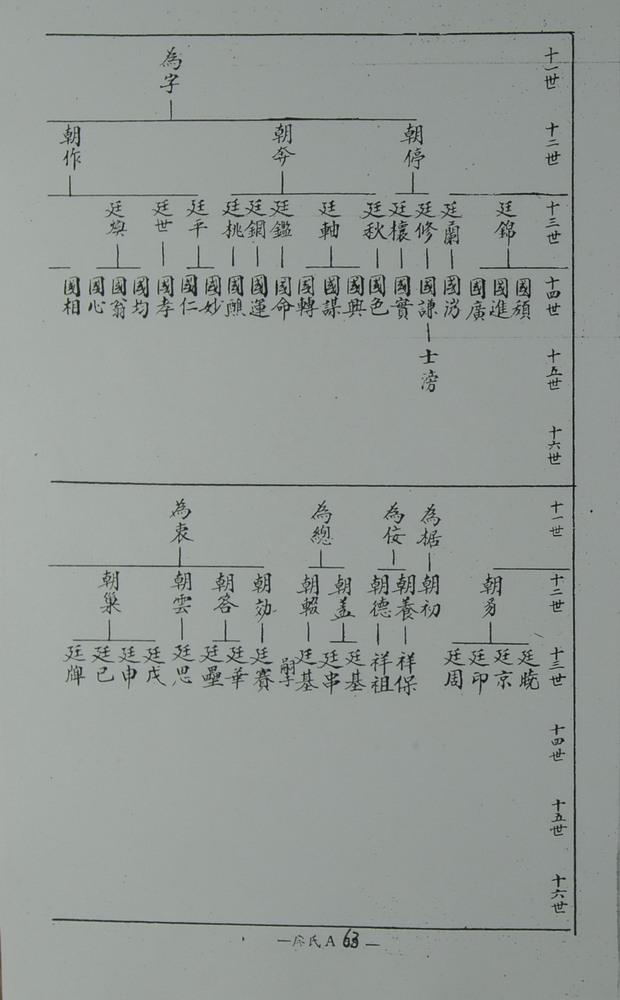 十一世
十二世
十三世
十四世
十五世
十六世
為字
朝停
朝奔
朝作
廷錦
廷蘭
廷修
廷欀
廷秋
廷軸
廷鑑
廷鋼
廷桃
廷平
廷世
國頏
國進
國廣
國謙
國實
國色
國興
國謀
國轉
國命
國運
國醮
國妙
國仁
國孝
國均
國翁
國心
國相
士滂
十一世
十二世
十三世
十四世
十五世
十六世
為椐
為佞
為總
為衷
朝易
朝初
朝養
朝德
朝蓋
朝輟
朝效
朝答
朝雲
朝巢
廷曉
廷京
廷印
廷周
祥保
祥祖
廷基
廷串
廷基
嗣子
廷賽
廷華
廷壘
廷思
廷戊
廷申
廷已
廷牌
氏A 63